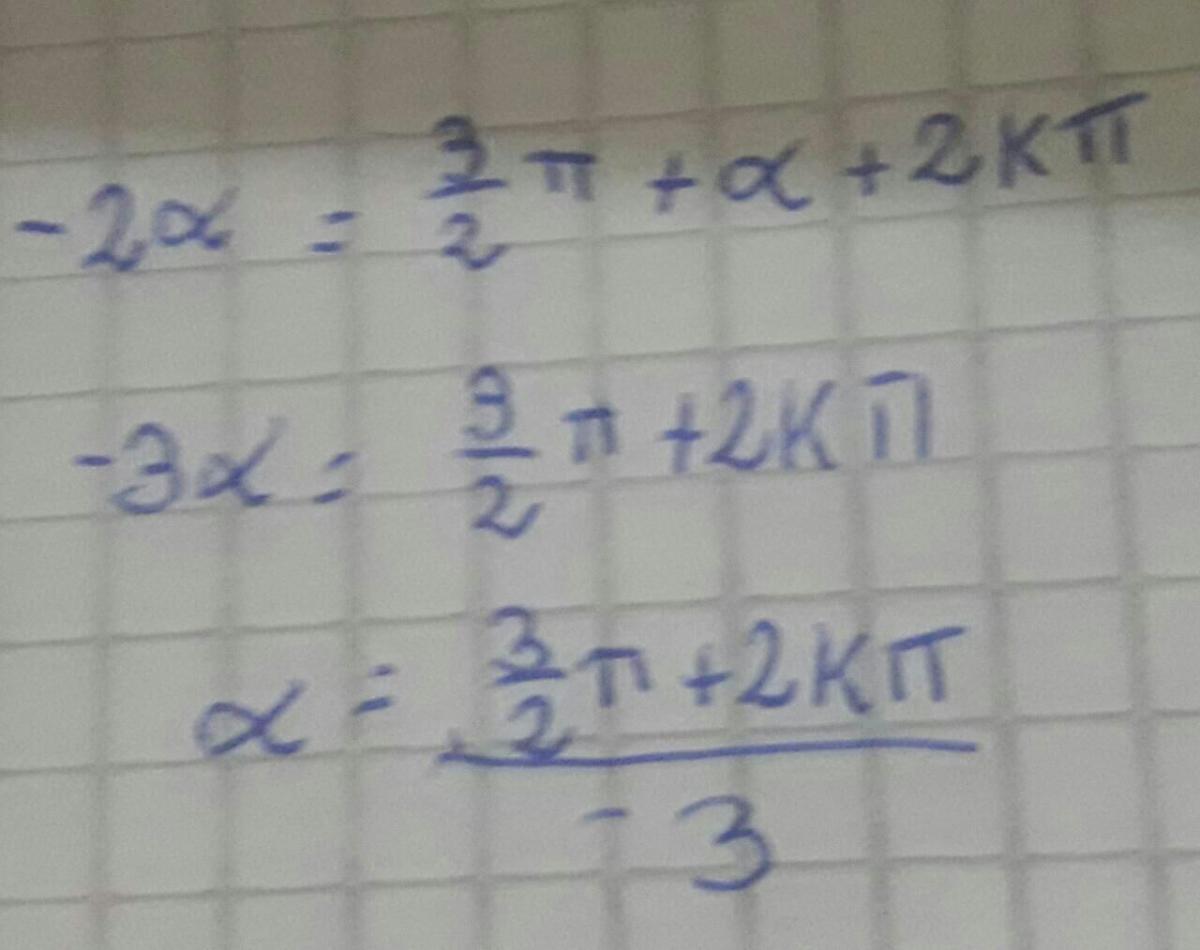 -2α = 3/2 π + α + 2kπ
-3α = 3/2 π + 2kπ
α = (3/2 π + 2kπ)/-3